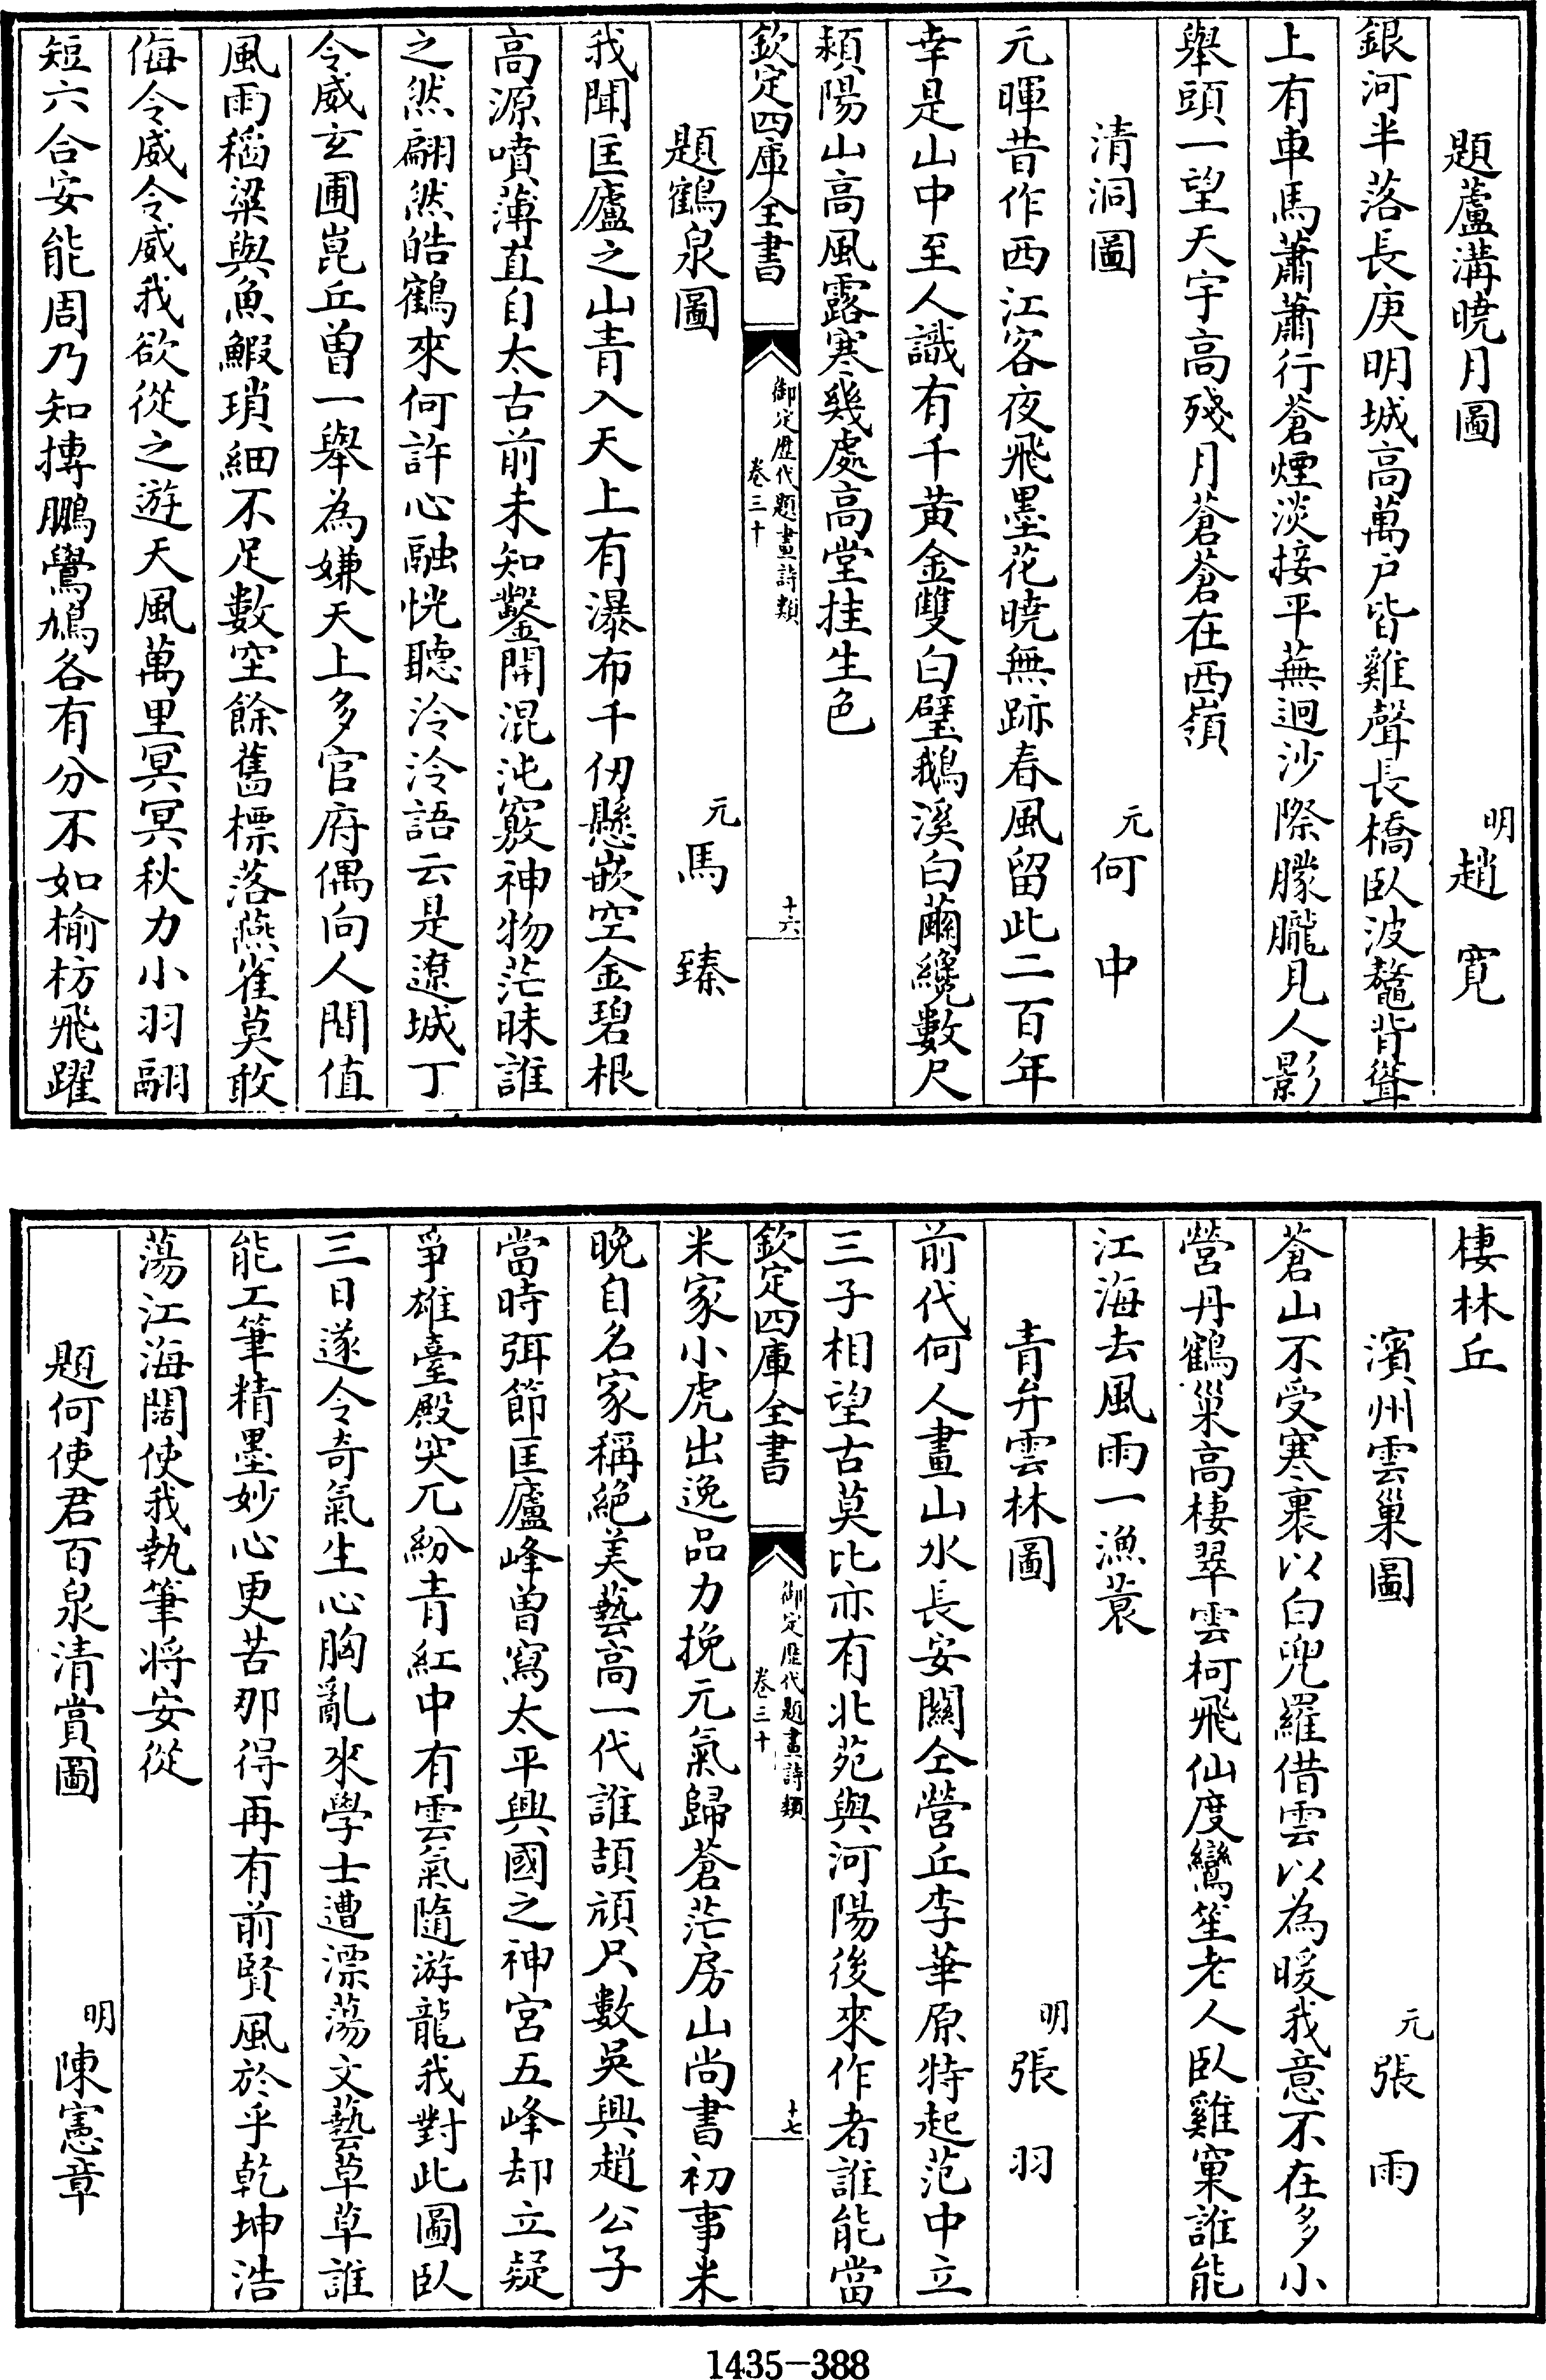 題蘆溝曉月圖
明趙寬
銀河半落長庚明城高萬戶皆雞聲長橋臥波鼇背聳
上有車馬蕭蕭行蒼煙淡接平蕪迥沙際朦朧見人影
舉頭一望天宇高殘月蒼蒼在西嶺
清洞圖
元何中
元暉昔作西江客夜飛墨花曉無跡春風留此二百年
幸是山中至人識有千黃金雙白璧鵝溪白繭纔數尺
潁陽山高風露寒幾處高堂挂生色
欽定四庫全書
御定歷代題畫詩類
卷三十
十六
題鶴泉圖
元馬臻
我聞匡廬之山青入天上有瀑布千仞懸嵌空金碧根
高源噴薄直自太古前未知鑿開混沌竅神物茫昧誰
之然翩然皓鶴來何許心融恍聽泠泠語云是遼城丁
令威玄圃崑丘曾一舉為嫌天上多官府偶向人間值
風雨稻粱與魚鰕瑣細不足數空餘舊標落燕雀莫敢
侮令威令威我欲從之遊天風萬里冥冥秋力小羽翮
短六合安能周乃知摶鵬鷽鳩各有分不如榆枋飛躍
棲林丘
濱州雲巢圖
元張雨
蒼山不受寒裹以白兜羅借雲以為暖我意不在多小
營丹鶴巢高棲翠雲柯飛仙度鸞笙老人臥雞窠誰能
江海去風雨一漁蓑
青弁雲林圖
明張羽
前代何人畫山水長安關仝營丘李華原特起范中立
三子相望古莫比亦有北苑與河陽後來作者誰能當
欽定四庫全書
御定歷代題畫詩類
卷三十
十七
米家小虎出逸品力挽元氣歸蒼茫房山尚書初事米
晚自名家稱絕美藝高一代誰頡頏只數吳興趙公子
當時弭節匡廬峰曾寫太平興國之神宮五峰却立疑
爭雄臺殿突兀紛青紅中有雲氣隨游龍我對此圖臥
三日遂令奇氣生心胸亂來學士遭漂蕩文藝草草誰
能工筆精墨妙心更苦那得再有前賢風於乎乾坤浩
蕩江海闊使我執筆將安從
題何使君百泉清賞圖
明陳憲章
1435-388